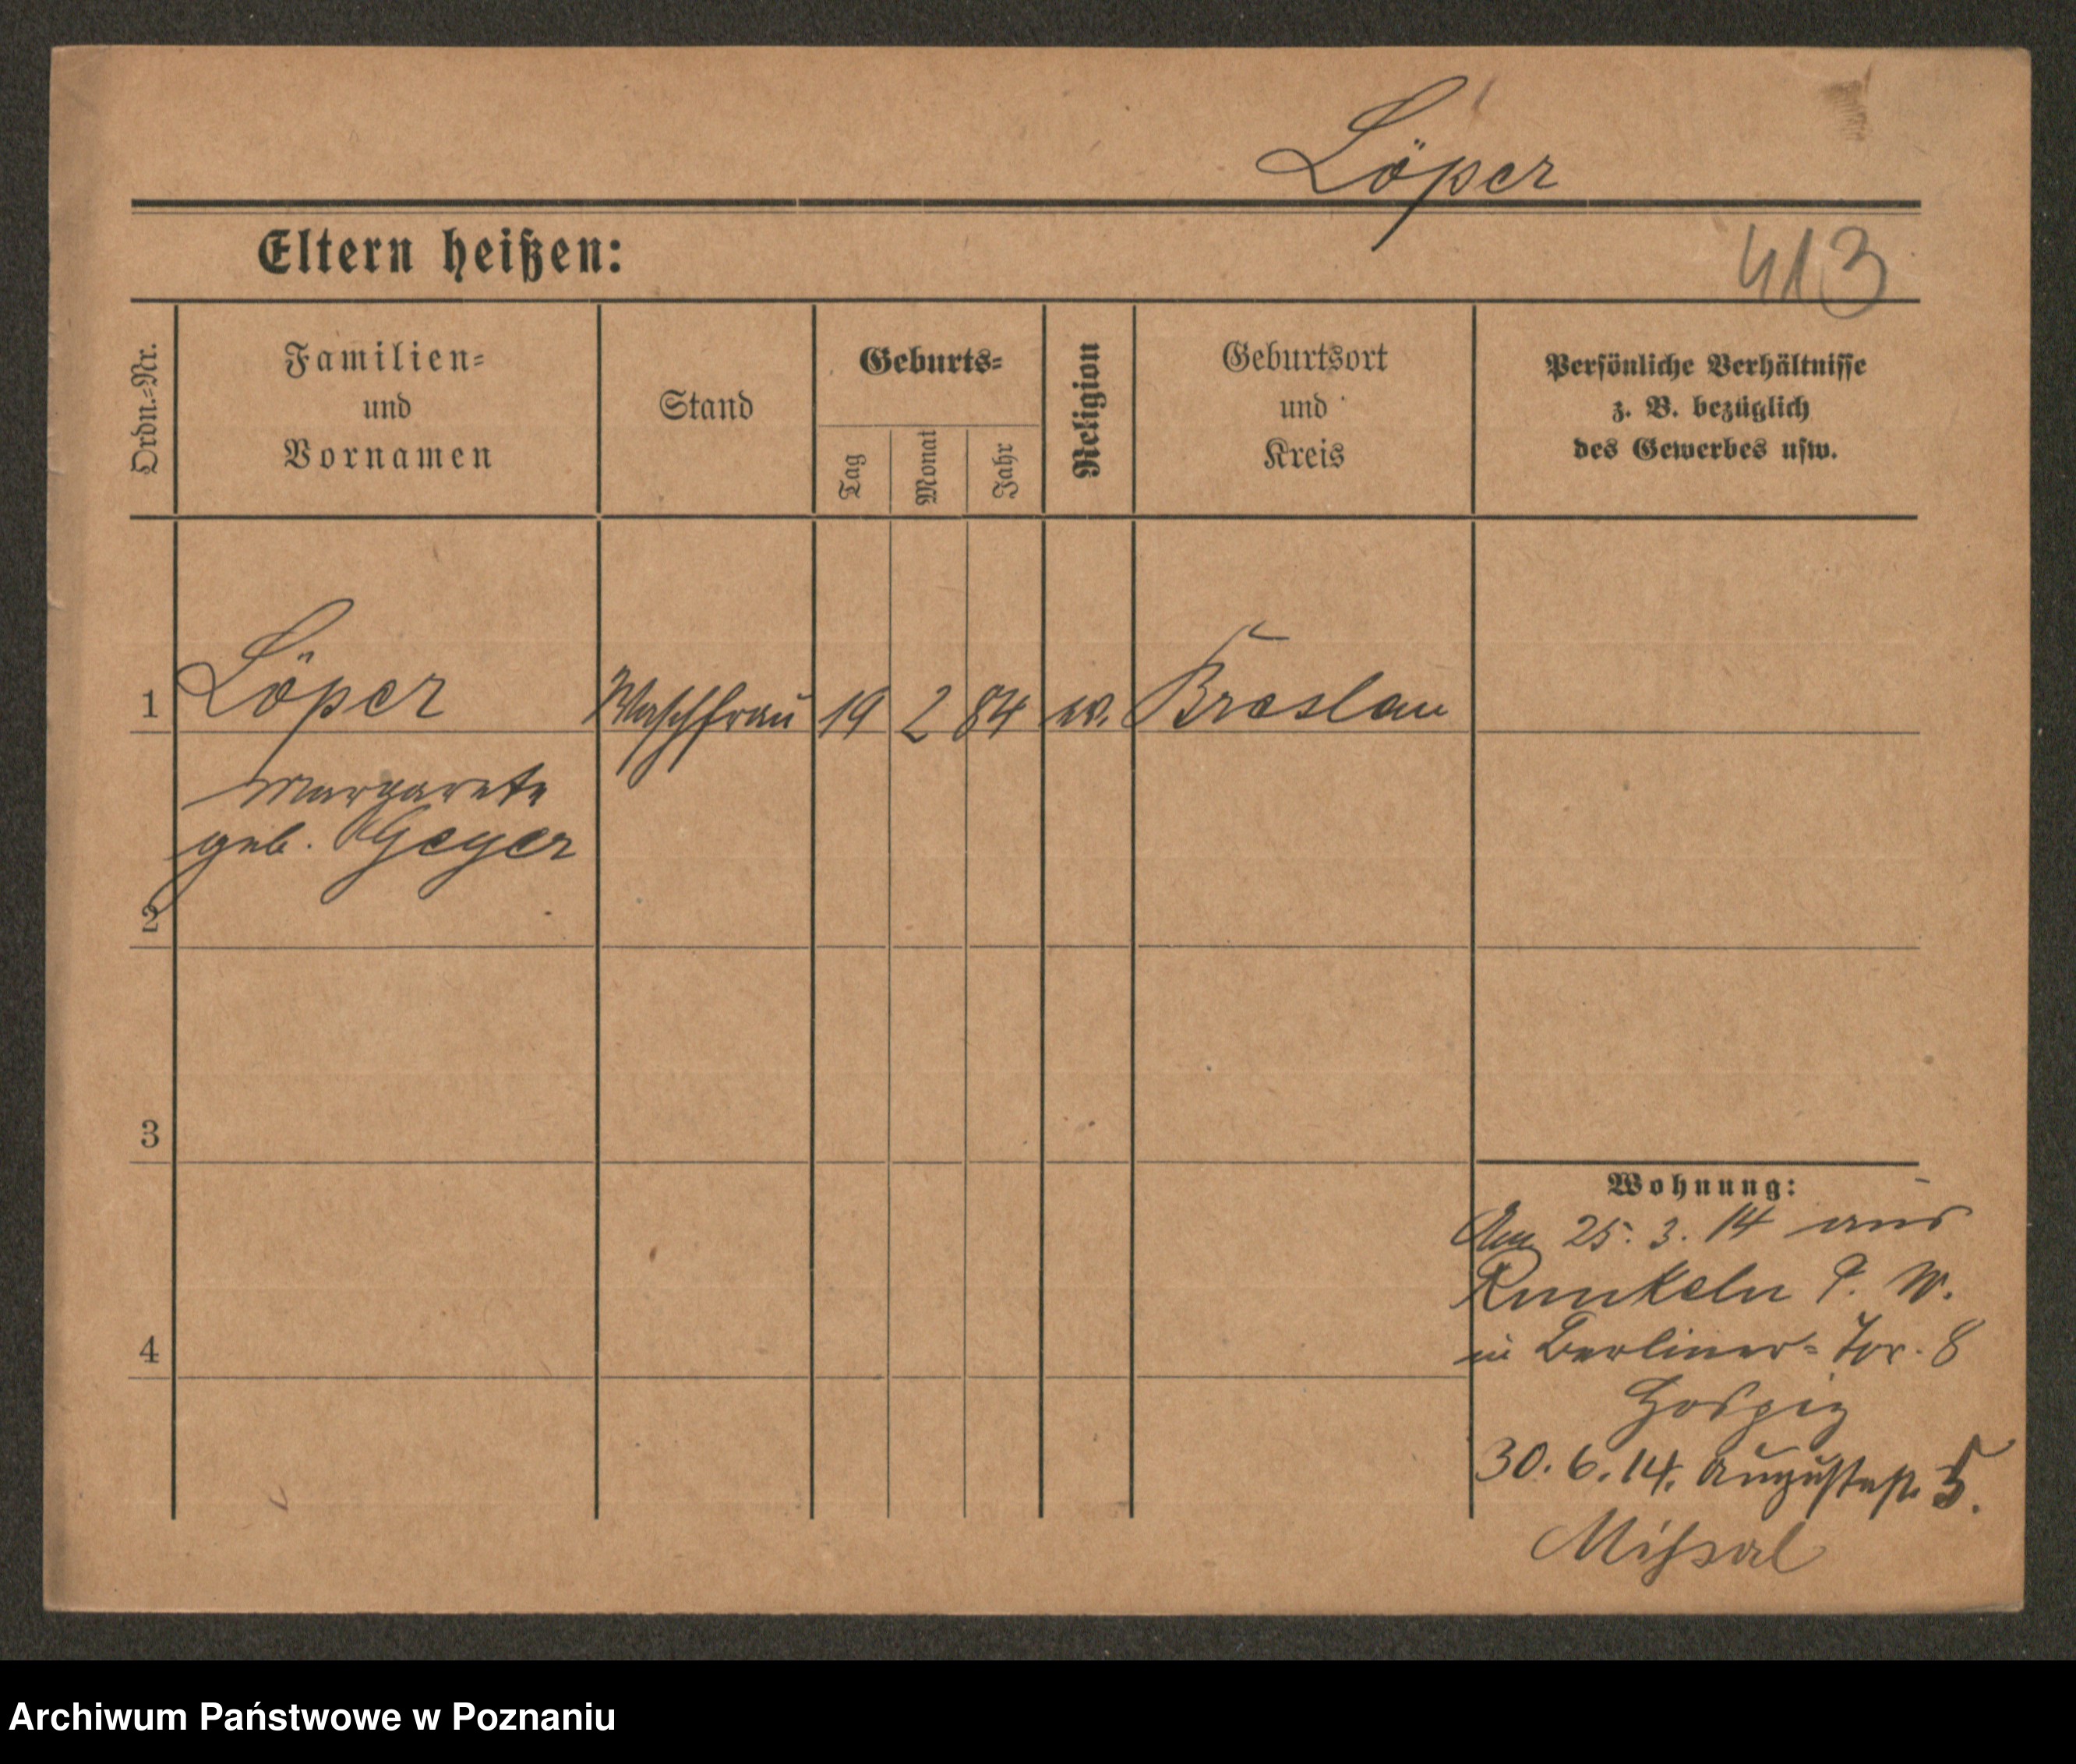 Löper
Eltern heißen:
413
Ordn.=Nr.
Familien=
und
Vornamen
Stand
Geburts=
Tag
Monat
Jahr
Religion
Geburtsort
und
Kreis
Persönliche Verhältnisse
z. B. bezüglich
des Gewerbes usw.
1
Löper
Waschfrau
19
2
84
ev.
Breslau
Margarete
geb. Geyer
2
3
4
Wohnung:
25. 3. 14 aus
Runkeln P. W.
in Berliner= Tor. 8
Hospiz
30. 6. 14. Augustastr. 5.
Missal
Archiwum Państwowe w Poznaniu